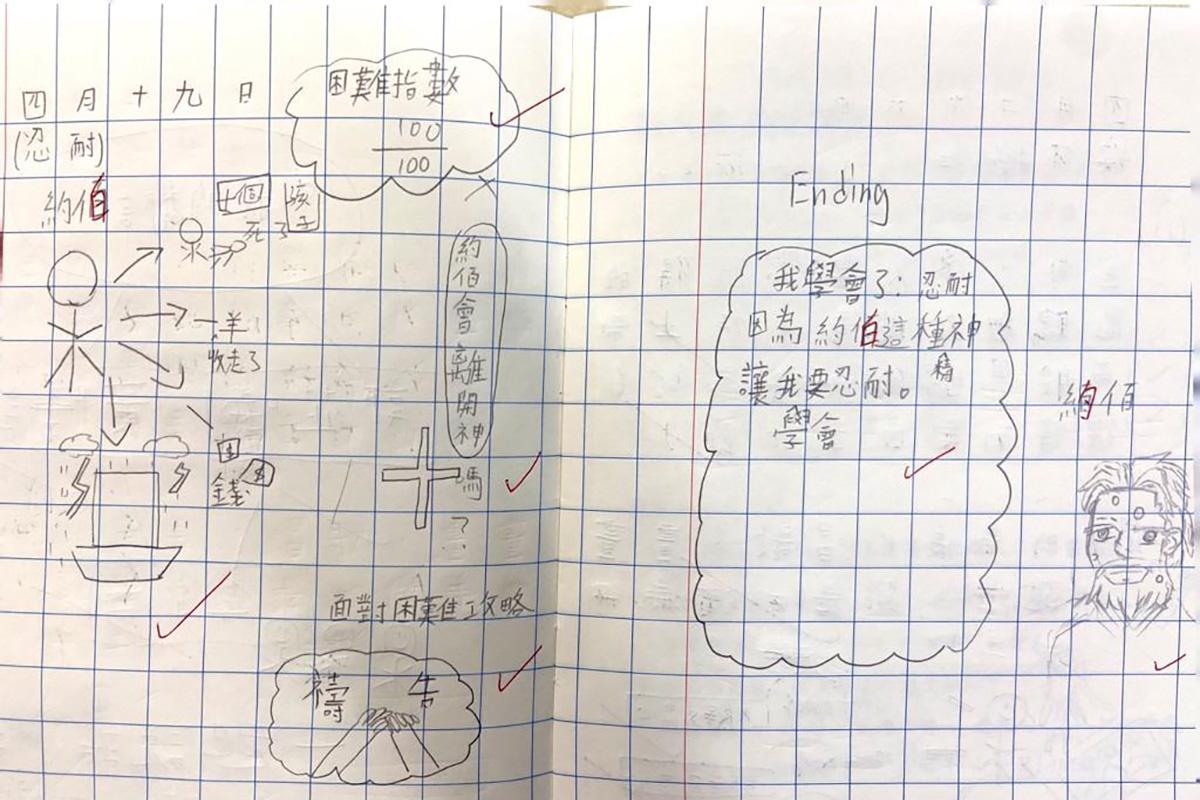 四月十九日
(忍耐)
約伯
困難指數
100
100
十個孩子
死了
羊
牧走了
錢
約伯會離開神嗎?
面對困難攻略
禱告
Ending
我學會了:忍耐
因為約伯這種神
精
讓我要忍耐。
學會
約伯